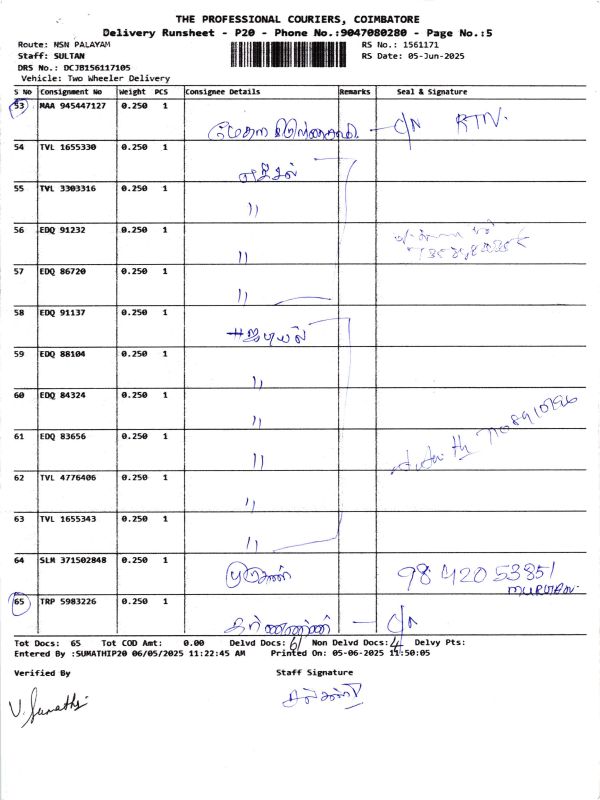 THE PROFESSIONAL COURIERS, COIMBATORE
Delivery Runsheet - P20 - Phone No.:9047080280 - Page No.:5
Route: NSN PALAYAM RS No.: 1561171
Staff: SULTAN RS Date: 05-Jun-2025
DRS No.: DCJB156117105
Vehicle: Two Wheeler Delivery
S No Consignment No Weight PCS Consignee Details Remarks Seal & Signature
53 MAA 945447127 0.250 1 C/N RTN.
54 TVL 1655330 0.250 1
55 TVL 3303316 0.250 1 "
56 EDQ 91232 0.250 1 "
57 EDQ 86720 0.250 1 "
58 EDQ 91137 0.250 1
59 EDQ 88104 0.250 1 "
60 EDQ 84324 0.250 1 "
61 EDQ 83656 0.250 1 "
62 TVL 4776406 0.250 1 "
63 TVL 1655343 0.250 1 "
64 SLM 371502848 0.250 1 முருகன் 98420 53851
65 TRP 5983226 0.250 1 C/N
Tot Docs: 65 Tot COD Amt: 0.00 Delvd Docs: 61 Non Delvd Docs: 4 Delvy Pts:
Entered By :SUMATHIP20 06/05/2025 11:22:45 AM Printed On: 05-06-2025 11:50:05
Verified By Staff Signature
V. Sumathi